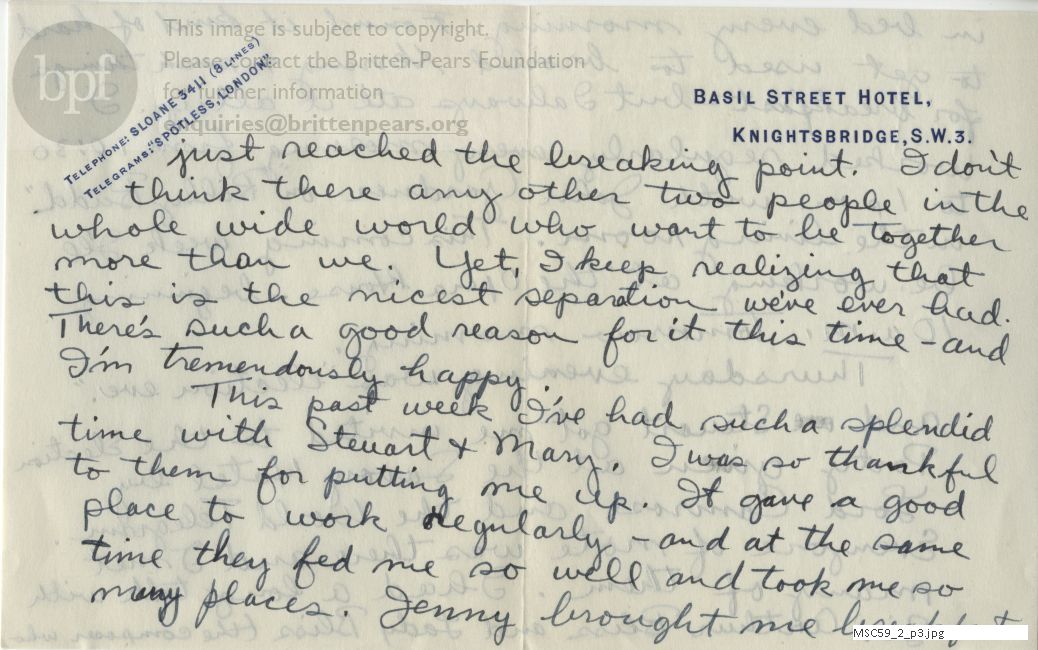 This image is subject to copyright.
Please contact the Britten-Pears Foundation
for further information
enquiries@brittenpears.org
bpf
TELEPHONE: SLOANE 3411 (8 LINES)
TELEGRAMS: "SPOTLESS, LONDON."
BASIL STREET HOTEL,
KNIGHTSBRIDGE, S.W.3.
just reached the breaking point. I don't
think there any other two people in the
whole wide world who want to be together
more than we. Yet, I keep realizing that
this is the nicest separation we've ever had.
There's such a good reason for it this time – and
I'm tremendously happy.
This past week I've had such a splendid
time with Steuart & Mary. I was so thankful
to them for putting me up. It gave a good
place to work regularly – and at the same
time they fed me so well and took me so
many places. Jenny brought me
MSC59_2_p3.jpg